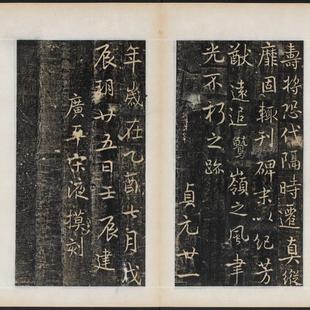 壽將恐代隔時遷真縱
靡固輙刊碑末以紀芳
猷遠追鷲嶺之風聿
光不朽之跡　貞元廿一
年歲在乙酉七月戊
辰朔廿五日壬辰建
廣平宋液摸刻